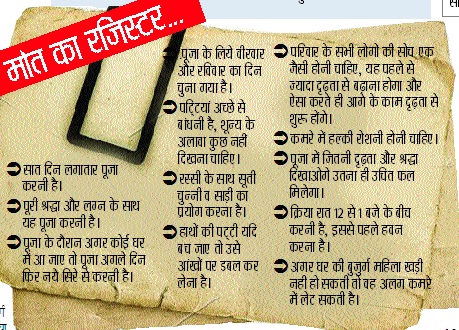 मौत का रजिस्टर...
सात दिन लगातार पूजा
करनी है।
पूरी श्रद्धा और लग्न के साथ
यह पूजा करनी है।
पूजा के दौरान अगर कोई घर
में आ जाए तो पूजा अगले दिन
फिर नये सिरे से करनी है।
पूजा के लिये वीरवार
और रविवार का दिन
चुना गया है।
पट्टियां अच्छे से
बांधनी है, शून्य के
अलावा कुछ नहीं
दिखना चाहिए।
रस्सी के साथ सूती
चुन्नी व साड़ी का
प्रयोग करना है।
हाथों की पट्टी यदि
बच जाए तो उसे
आंखों पर डबल कर
लेना है।
परिवार के सभी लोगो की सोच एक
जैसी होनी चाहिए, यह पहले से
ज्यादा दृढ़ता से बढ़ाना होगा और
ऐसा करते ही आगे के काम दृढ़ता से
शुरू होंगे।
कमरे में हल्की रोशनी होनी चाहिए।
पूजा में जितनी दृढ़ता और श्रद्धा
दिखाओगे उतना ही उचित फल
मिलेगा।
क्रिया रात 12 से 1 बजे के बीच
करनी है, इससे पहले हवन
करना है।
अगर घर की बुजुर्ग महिला खड़ी
नही हो सकती तो वह अलग कमरे
में लेट सकती है।